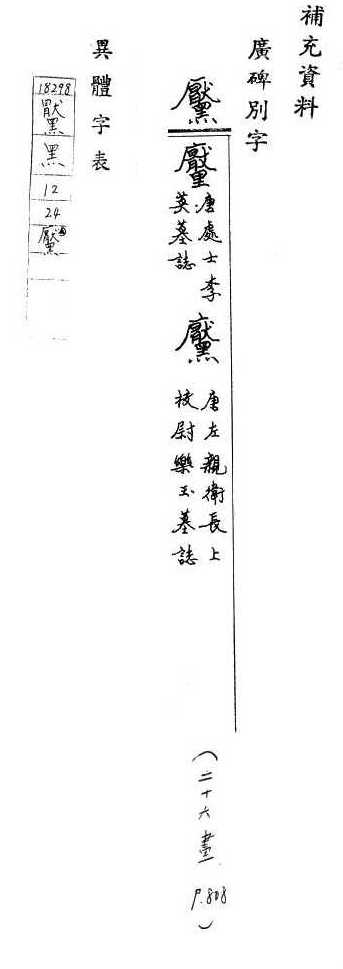 補充資料
廣碑別字
黶
唐處士李
英墓誌
唐左親衛長上
校尉樂玉墓誌
(二十六畫 P.808)
異體字表
18298
黑
12
24
黶